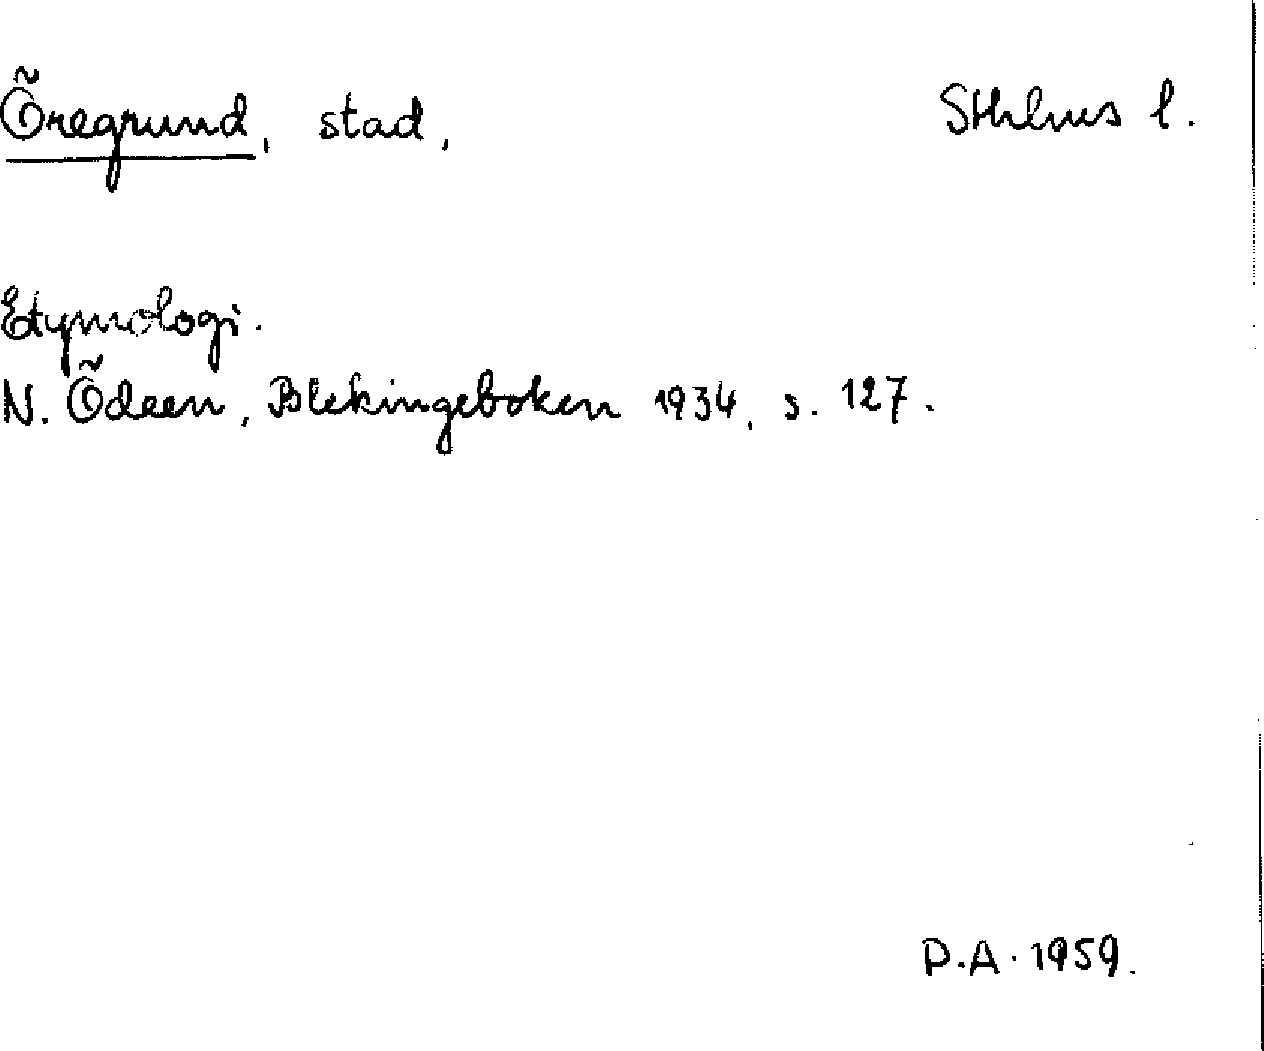 Öregrund, stad, Sthlms l.
Etymologi.
N. Ödeen, Blekingeboken 1934, s. 127.
P.A. 1959.